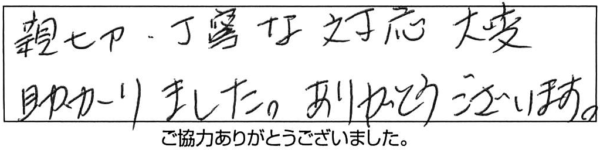 親切・丁寧な対応 大変
助かりました。ありがとうございます。
ご協力ありがとうございました。